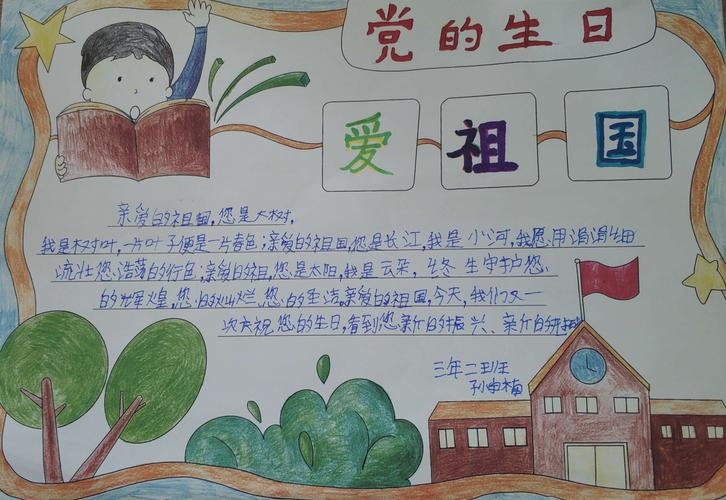 党的生日
爱祖国
亲爱的祖国,您是大树,
我是树叶,一片叶子便是一片春色;亲爱的祖国,您是长江,我是小河,我愿用涓涓细
流壮您浩荡的行色;亲爱的祖,您是太阳,我是云朵,生守护您
的辉煌,您的灿烂,您的圣洁,亲爱的祖国,今天,我们又一
次庆祝您的生日,看到您新的振兴、新的
三年二班
孙楠